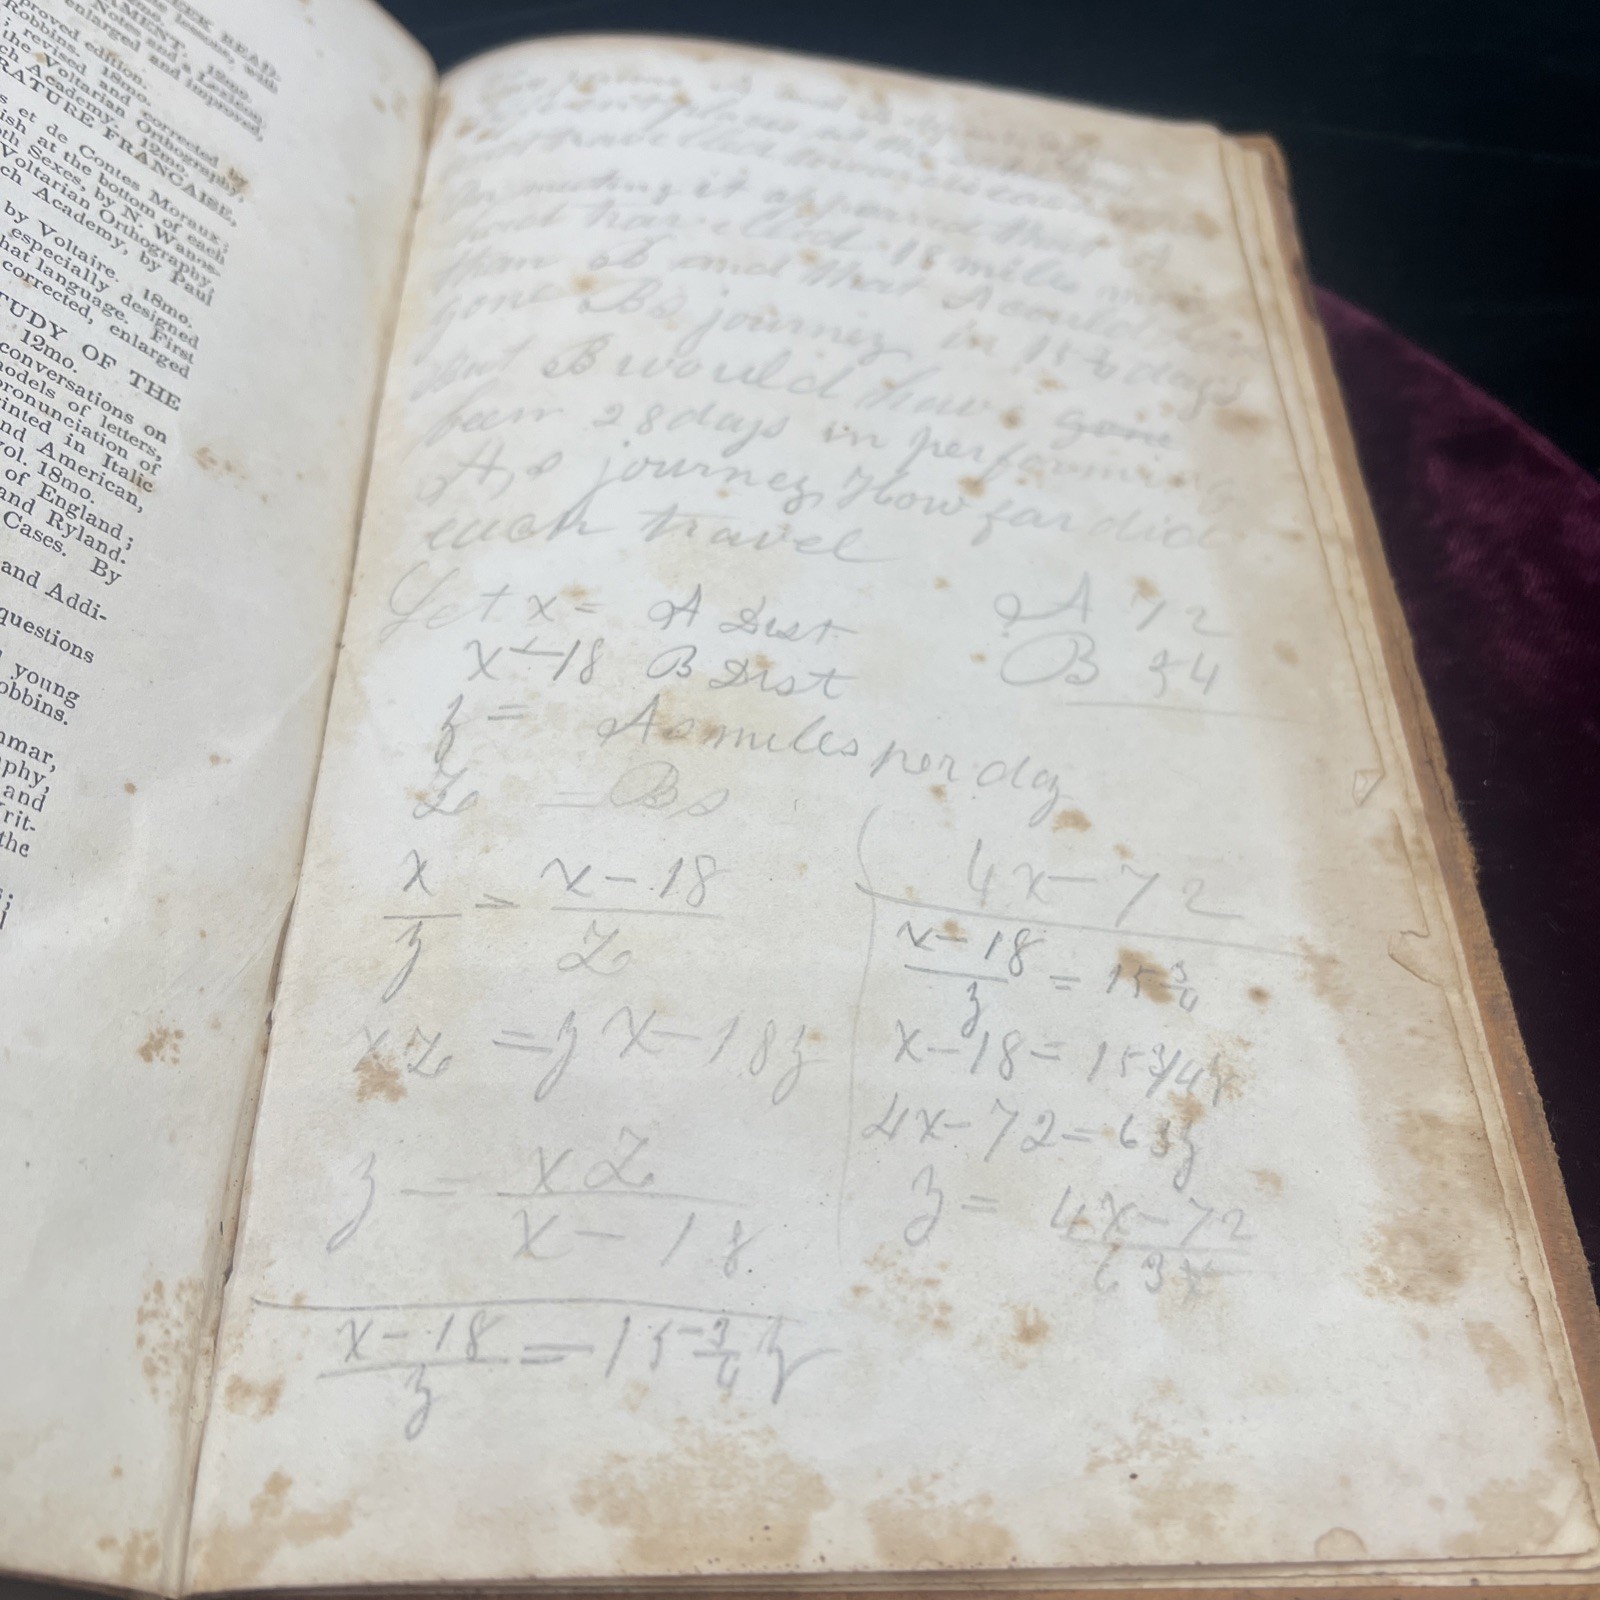 EEK READ-
AMENT. 12mo.
Notes and a Lexicon,
enlarged and improved,
proved edition.
Robbins.
; revised
the Voltarian 18mo.
and corrected by
ch Academy. Orthography,
12mo.
RATURE FRANCAISE,
s et de Contes Moraux;
ish at the bottom of each
oth Sexes, by N. Wanos-
Voltarian Orthography,
ch Academy, by Paul
by Voltaire. 18mo.
especially designed
hat language. First
corrected, enlarged
TUDY OF THE
12mo.
conversations on
models of letters,
pronunciation of
rinted in Italic
and American,
vol. 18mo.
of England;
and Ryland.
Cases. By
and Addi-
questions
young
obbins.
mmar,
phy,
and
rit-
the
and
and travelled towards each
On meeting it appeared that A
had travelled 18 miles more
than B and that A could have
gone Bs journey in 15 3/4 days
but B would have gone
been 28 days in performing
A,s journey, How far did
each travel
Let x = A Dist
A 72
x-18 B Dist
B 54
z = As miles per day
Z = Bs
x/z = x-18/Z
xZ = zx-18z
z = xZ/x-18
x-18/z = 15 3/4 z
4x-72
x-18/z = 15 3/4
x-18 = 15 3/4 z
4x-72 = 63z
z = 4x-72/63x